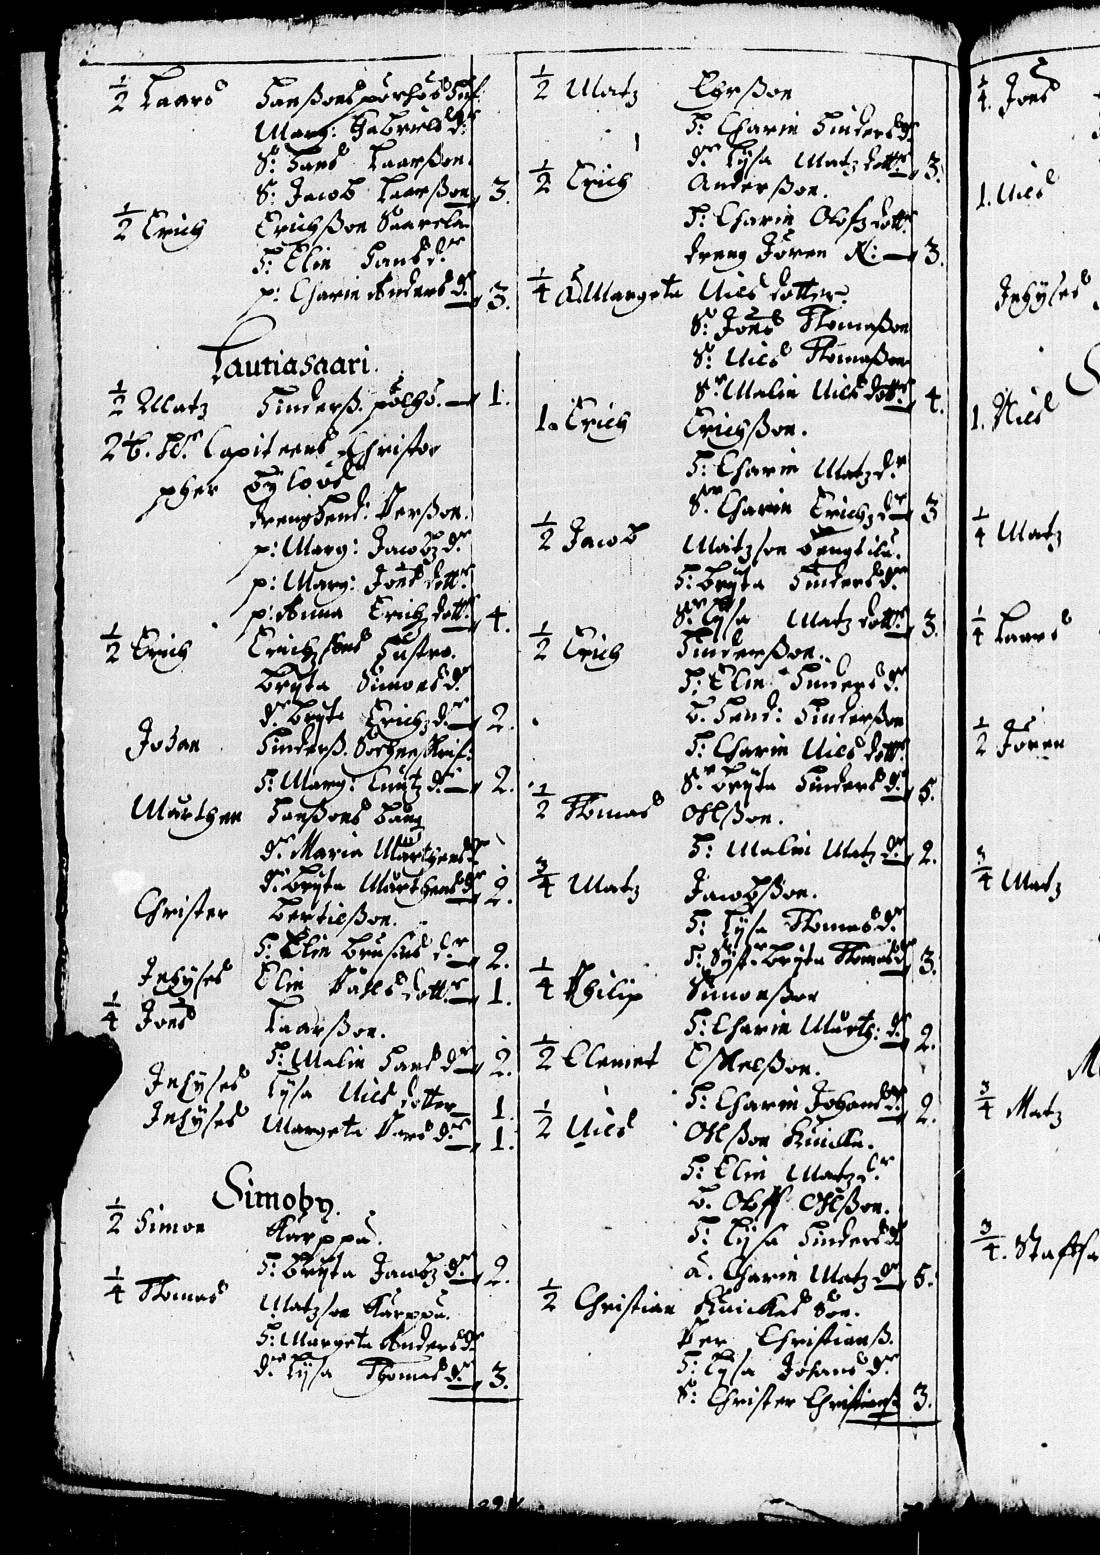 1/2 Laars Hanßons
Marg: Gabriels dr
S: Hans Laarßon.
S: Jacob Laarßon 3.
1/2 Erich Erichßon Saarela
H: Elin Hans dr
p: Charin Anders d. 3.
Lautiasaari.
1/2 Matz Hinderß. 1.
Capiteens Christo
pher
dreng Hend: Perßon.
p: Marg: Jacobz dr
p: Marg: Jons dottr
p: Anna Erichz dottr 4.
1/2 Erich Erichsons Hustro.
Bryta Simons d.
dr Bryta Erichz dr 2.
Johan Hinderß.
H: Marg: Knutz dr 2.
Marthen Hanßons
dr Maria Marthens dr
dr Bryta Marthens dr 2.
Christer Bertilßon.
H: Elin dr 2.
Inhyses Elin Påhls dottr 1.
1/4 Jons Laarßon.
H: Malin Hans dr 2.
Inhyses Lysa Nils dotter 1.
Inhyses Margeta Pers dr 1.
Simoby.
1/2 Simon Karppu.
H: Bryta Jacobz dr 2.
1/4 Thomas Matzson Karppu.
H: Margeta Anders dr
dr Lysa Thomas dr 3.
1/2 Matz
H: Charin Hinders dr
dr Lysa Matz dottr 3.
1/2 Erich Anderßon.
H: Charin Olofz dottr
dreng Jören N: 3.
1/4 Margeta Nils dotter.
S: Jons Thomaßon
S: Nils Thomaßon
Sr Malin Nils dottr 4.
1. Erich Erichßon.
H: Charin Matz dr
Sr Charin Erichz dr 3
1/2 Jacob Matzson
H: Bryta Hinders dr
Sr Lysa Matz dottr 3.
1/2 Erich Hinderßon.
H: Elin Hinders dr
b. Hend: Hinderßon
H: Charin Nils dottr
Sr Bryta Hinders dr 5.
1/2 Thomas Olßon.
H: Malin Matz dr 2.
3/4 Matz Jacobßon.
H: Lysa Thomas dr
H: Syst: Bryta Thomas dr 3.
1/4 Philip Simonßon
H: Charin Martz: dr 2.
1/2 Clemet Eskelßon.
H: Charin Johans dr 2.
1/2 Nils Olßon Kuicka.
H: Elin Matz dr
b. Oloff Olßon.
H: Lysa Hinders dr
a. Charin Matz dr 5.
1/2 Christian Kuickas Son.
Per Christianß.
H: Lysa Johans dr
S: Christer Christianß 3.
1/4. Jons
1. Nils
Inhyses
1. Nils
1/4 Matz
1/4 Laars
1/2 Jören
3/4 Matz
3/4 Matz
3/4.